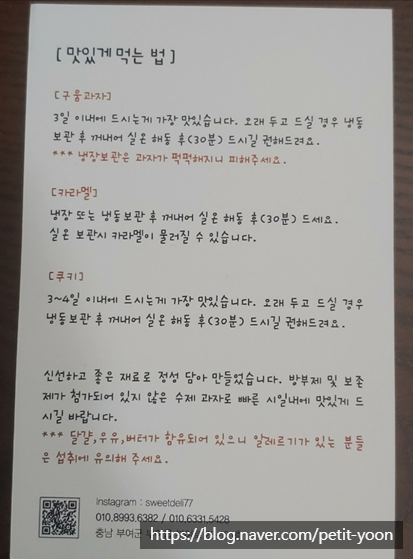 [ 맛있게 먹는 법 ]
[구움과자]
3일 이내에 드시는게 가장 맛있습니다. 오래 두고 드실 경우 냉동
보관 후 꺼내어 실온 해동 후(30분) 드시길 권해드려요.
*** 냉장보관은 과자가 퍽퍽해지니 피해주세요.
[카라멜]
냉장 또는 냉동보관 후 꺼내어 실온 해동 후(30분) 드세요.
실온 보관시 카라멜이 물러질 수 있습니다.
[쿠키]
3~4일 이내에 드시는게 가장 맛있습니다. 오래 두고 드실 경우
냉동보관 후 꺼내어 실온 해동 후(30분) 드시길 권해드려요.
신선하고 좋은 재료로 정성 담아 만들었습니다. 방부제 및 보존
제가 첨가되어 있지 않은 수제 과자로 빠른 시일내에 맛있게 드
시길 바랍니다.
*** 달걀,우유,버터가 함유되어 있으니 알레르기가 있는 분들
은 섭취에 유의해 주세요.
instagram : sweetdeli77
010.8993.6382 / 010.6331.5428
충남 부여군
https://blog.naver.com/petit-yoon